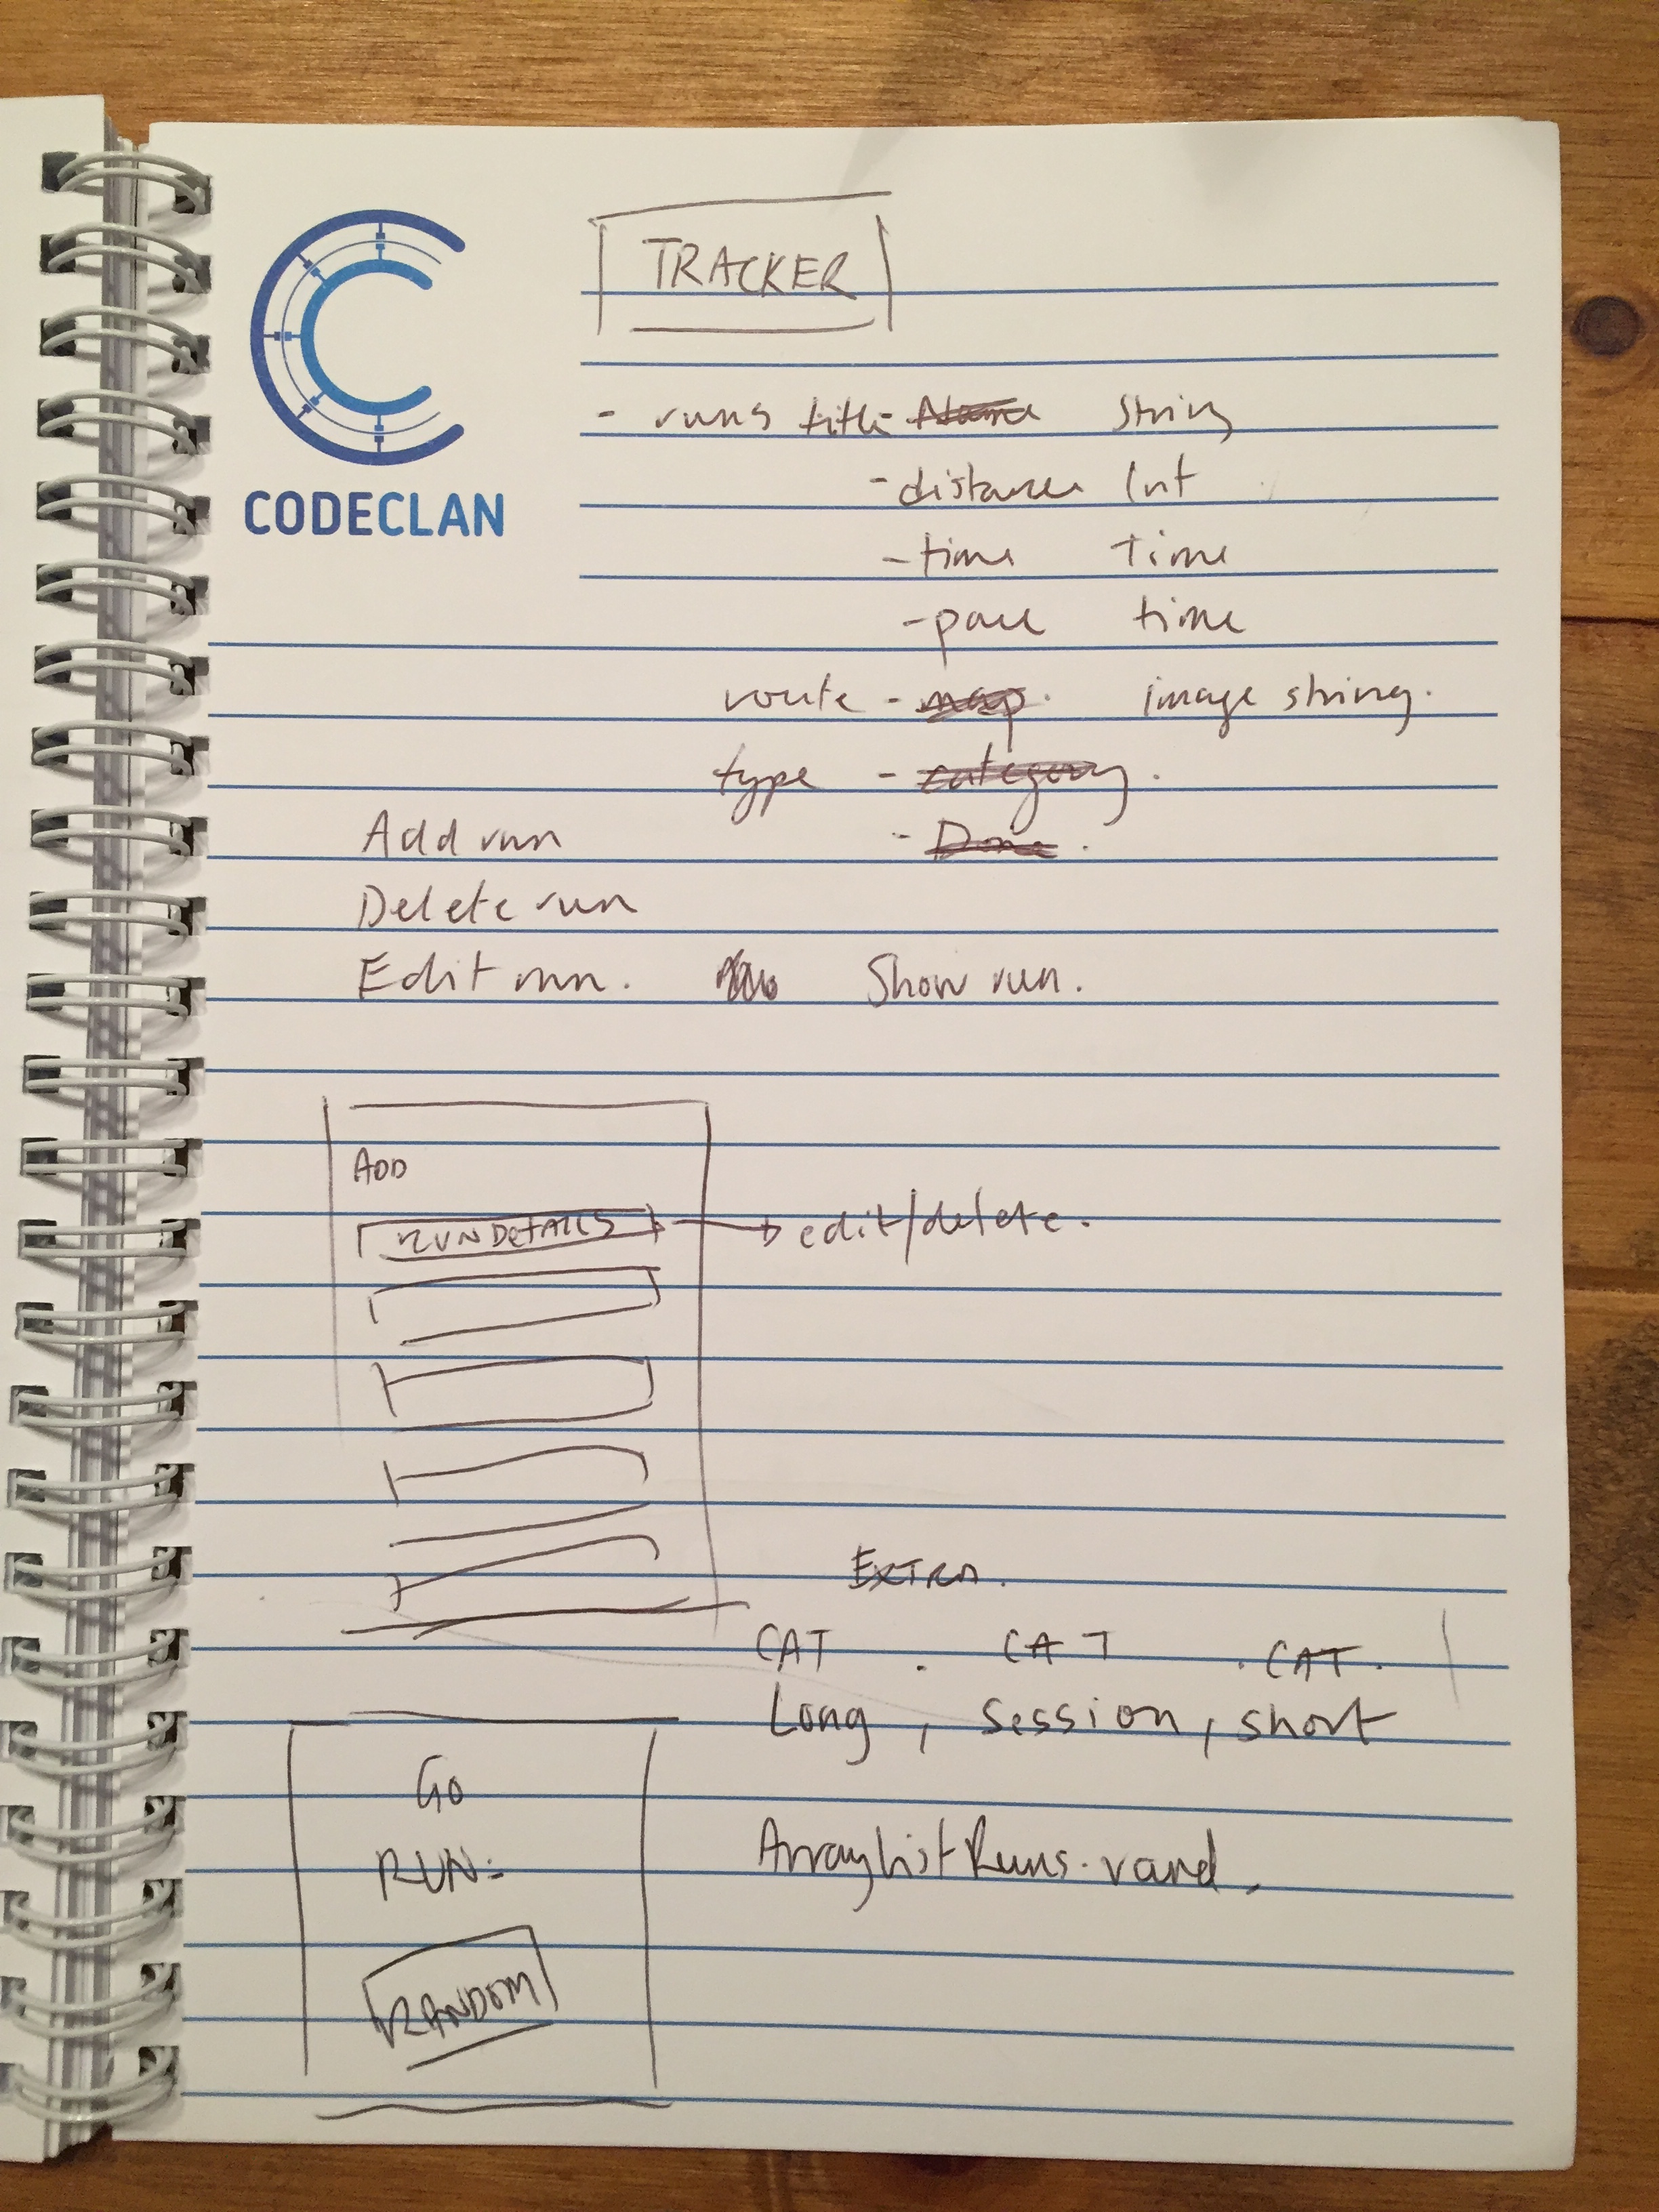 CODECLAN
TRACKER
- runs title - Name String
- distance Int
- time Time
- pace time
route - map. image string.
type - category.
- Done.
Add run
Delete run
Edit run. Show run.
ADD
RUN DETAILS → edit/delete.
EXTRA.
CAT . CAT . CAT.
Long, session, short
GO
RUN:
RANDOM
ArrayList Runs.rand,